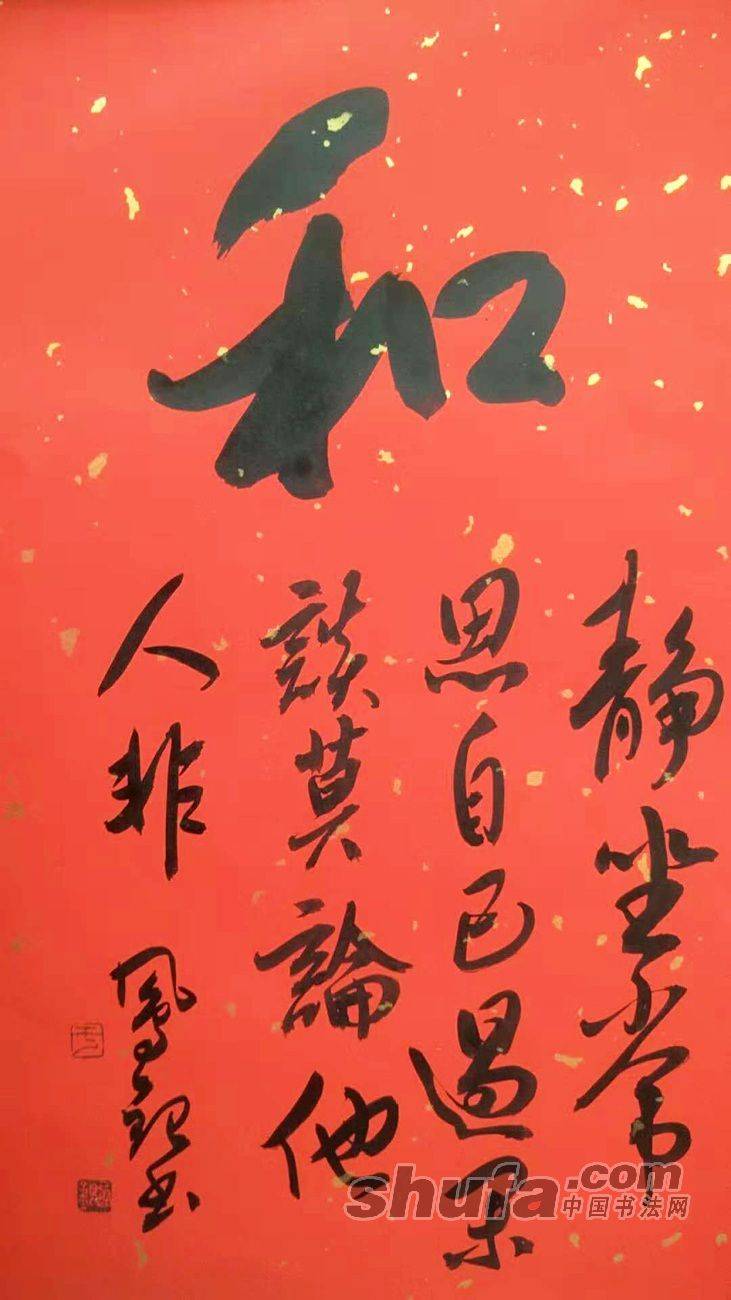 和
静坐常
思自己過閑
談莫論他
人非
鳳 书
shufa.com
中国书法网